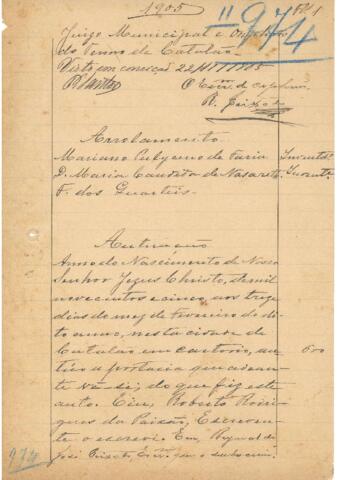 1905
Fls 1
11974
Juizo Municipal e Orphãos
do Termo de Catalão
Visto em correição 22
O Escr. de orphãos
R. Peixoto
Arrolamento
Mariano de Faria Invent.º
D. Maria Candida de Nasareth Invent.e
F. dos Quarteis
Autuação
Anno do Nascimento de Nosso
Senhor Jezus Christo, de mil
novecentos e cinco, aos treze
dias do mez de Fevereiro do di-
to anno, nesta cidade de
Catalão em cartorio, au-
tuo a portaria que adean- 600
te vê-se; do que fiz este
auto. Eu, Roberto Rodri-
gues da Paixão, Escreven-
te o escrevi. Eu,
José Peixoto, Escr. que o subscrevi.
974